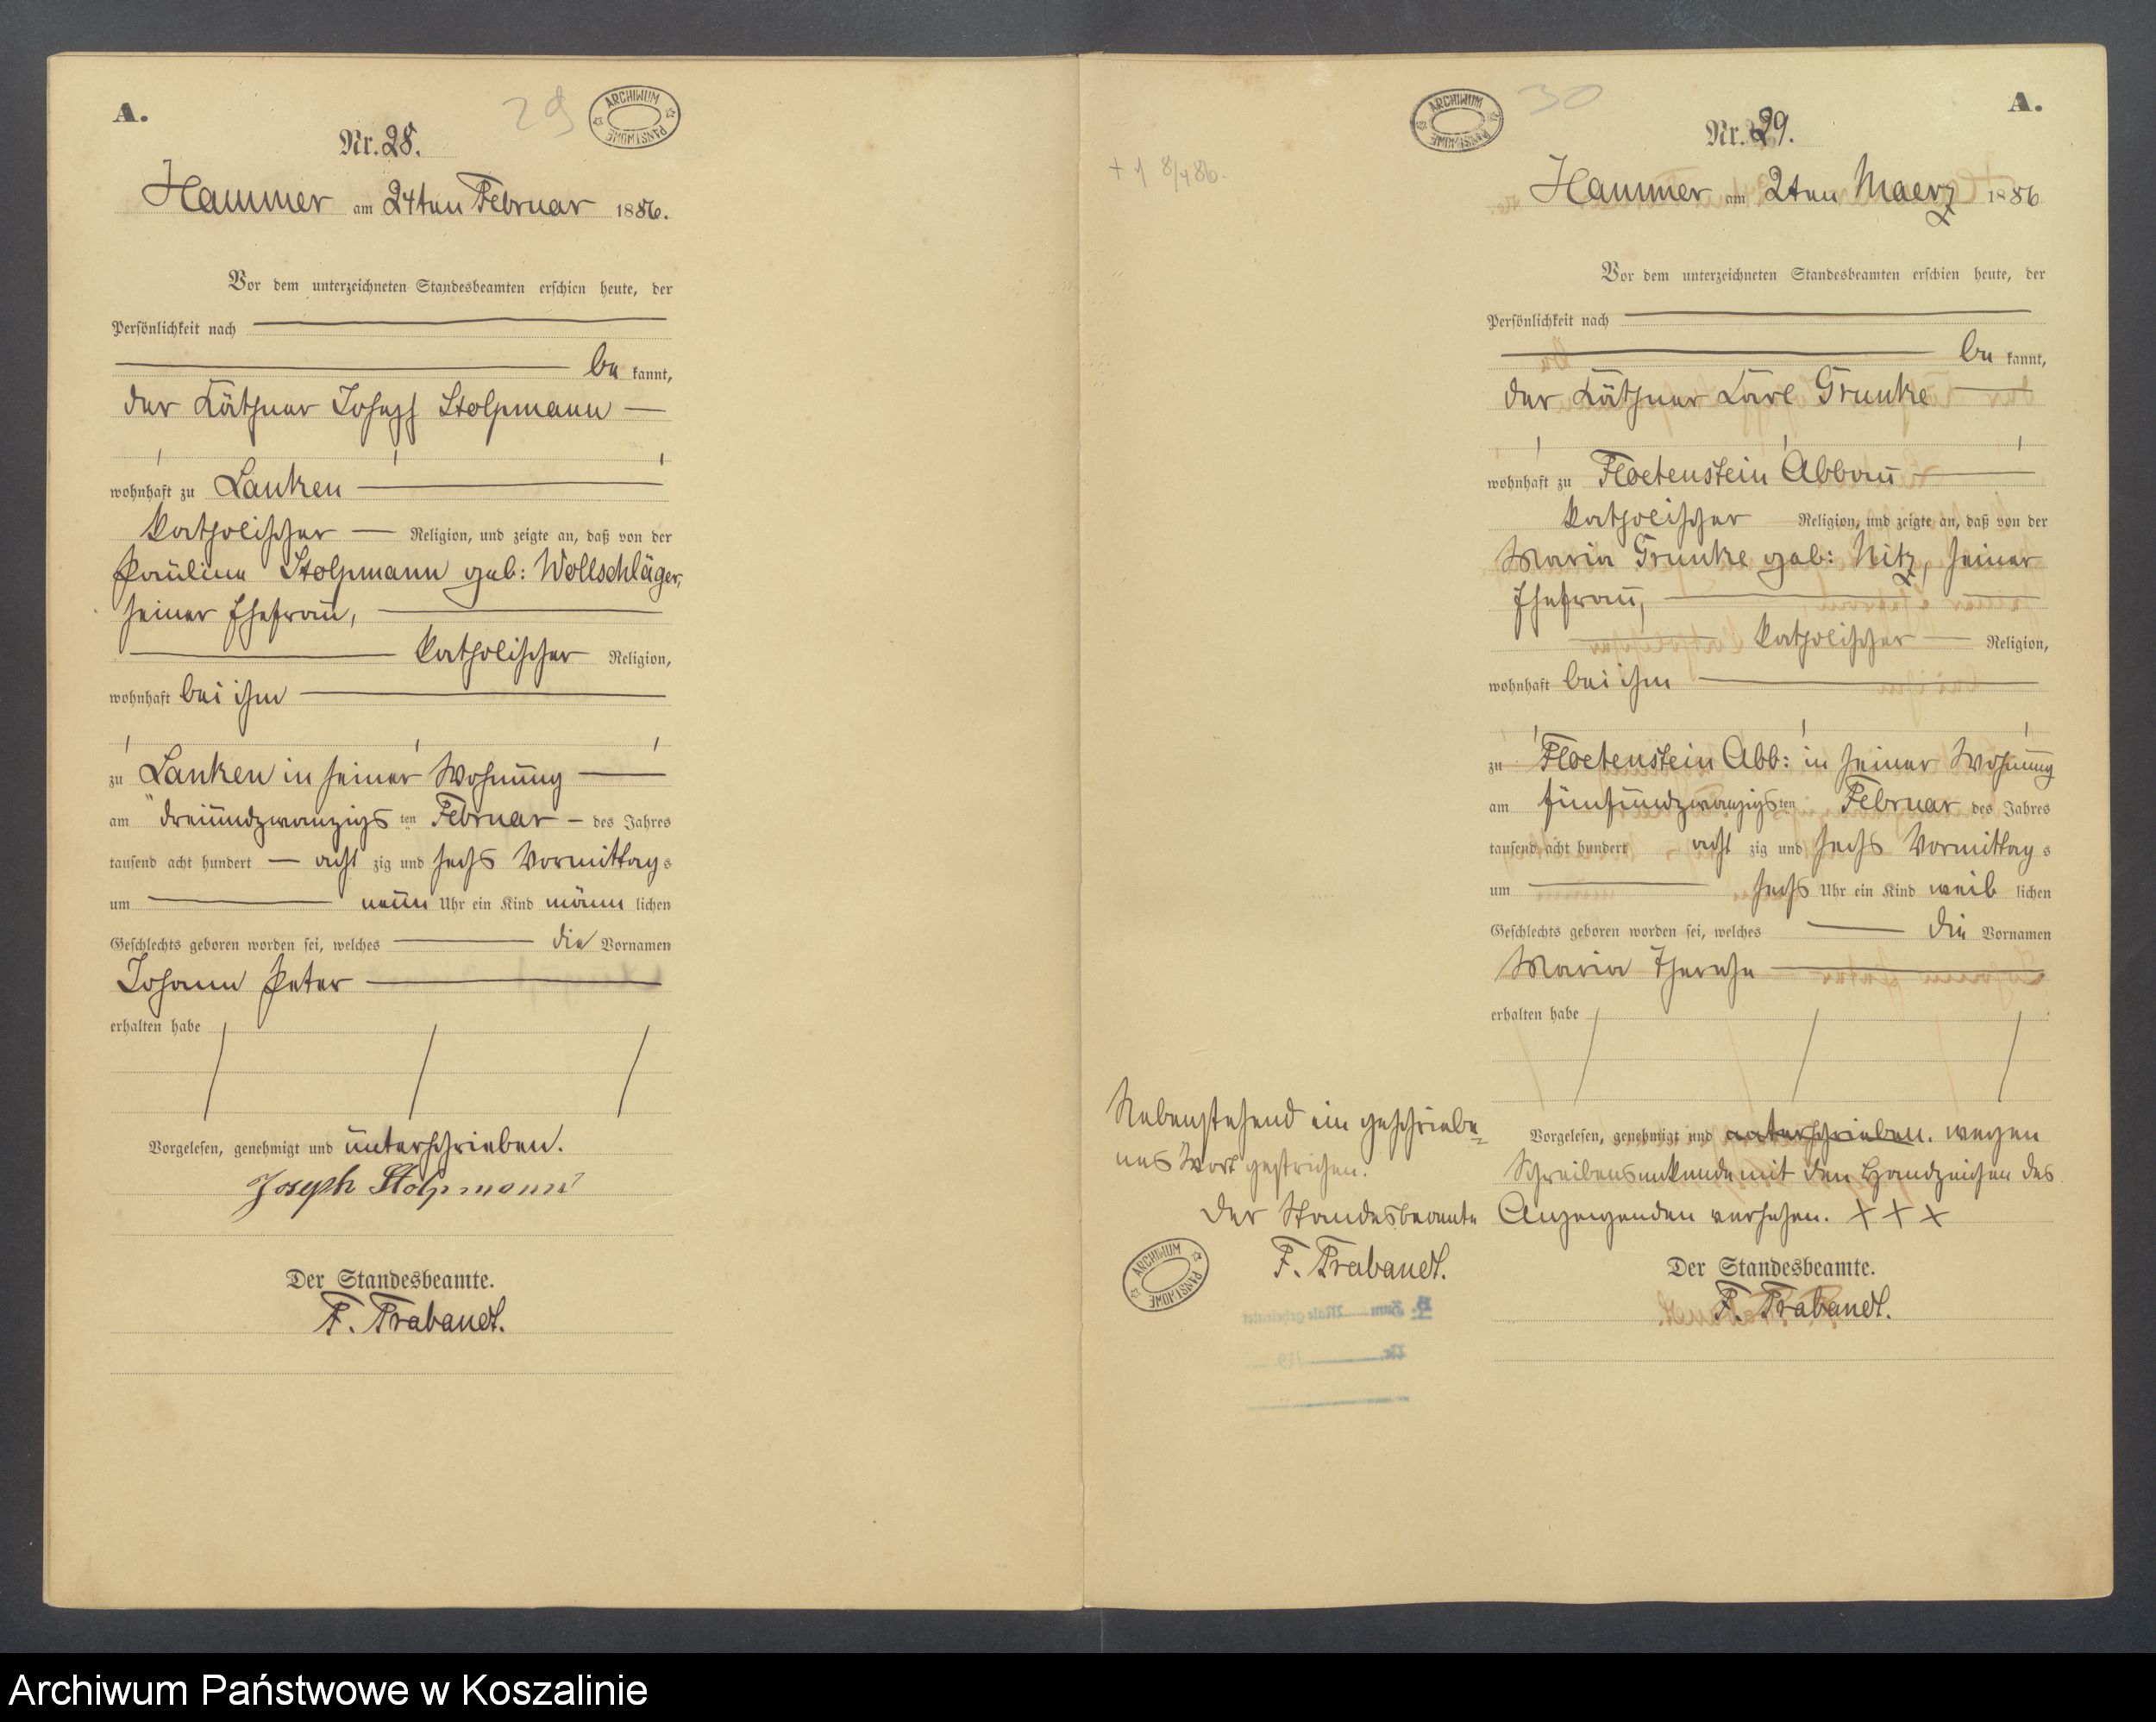 A.
29
ARCHIWUM PAŃSTWOWE
Nr. 28.
Hammer am 24ten Februar 1886.
Vor dem unterzeichneten Standesbeamten erschien heute, der
Persönlichkeit nach
be kannt,
der Käthner Joseph Stolpmann
wohnhaft zu Lanken
katholischer Religion, und zeigte an, daß von der
Pauline Stolpmann geb: Wollschläger,
seiner Ehefrau,
katholischer Religion,
wohnhaft bei ihm
zu Lanken in seiner Wohnung
am dreiundzwanzigs ten Februar des Jahres
tausend acht hundert acht zig und sechs Vormittag s
um neun Uhr ein Kind männ lichen
Geschlechts geboren worden sei, welches die Vornamen
Johann Peter
erhalten habe
Vorgelesen, genehmigt und unterschrieben.
Joseph Stolpmann
Der Standesbeamte.
F. Trabandt.
ARCHIWUM PAŃSTWOWE
30
A.
+ 1 8/4 86.
Nr. 29.
Hammer am 2ten Maerz 1886
Vor dem unterzeichneten Standesbeamten erschien heute, der
Persönlichkeit nach
be kannt,
der Käthner Carl Grunke
wohnhaft zu Floetenstein Abbau
katholischer Religion, und zeigte an, daß von der
Maria Grunke geb: Nitz, seiner
Ehefrau,
katholischer Religion,
wohnhaft bei ihm
zu Floetenstein Abb: in seiner Wohnung
am fünfundzwanzigs ten Februar des Jahres
tausend acht hundert acht zig und sechs Vormittag s
um sechs Uhr ein Kind weib lichen
Geschlechts geboren worden sei, welches die Vornamen
Maria Therese
erhalten habe
Vorgelesen, genehmigt und unterschrieben. wegen
Schreibensunkunde mit den Handzeichen des
Anzeigenden versehen. + + +
Der Standesbeamte.
F. Trabandt.
Nebenstehend ein geschriebe=
nes Wort gestrichen.
Der Standesbeamte
F. Trabandt.
ARCHIWUM PAŃSTWOWE
Archiwum Państwowe w Koszalinie